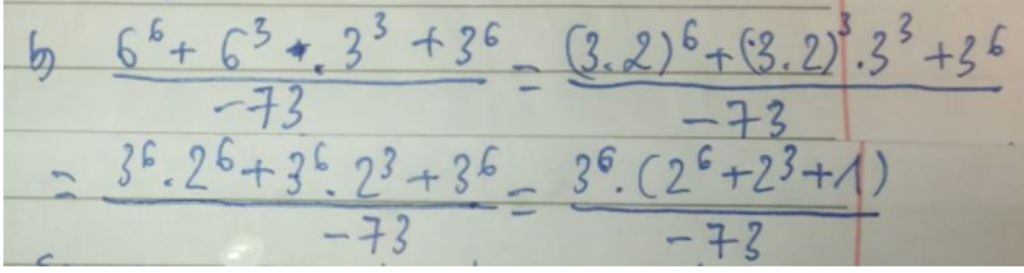 b) (6^6 + 6^3 . 3^3 + 3^6)/(-73) = ((3.2)^6 + (3.2)^3 . 3^3 + 3^6)/(-73)
= (3^6 . 2^6 + 3^6 . 2^3 + 3^6)/(-73) = (3^6 . (2^6 + 2^3 + 1))/(-73)